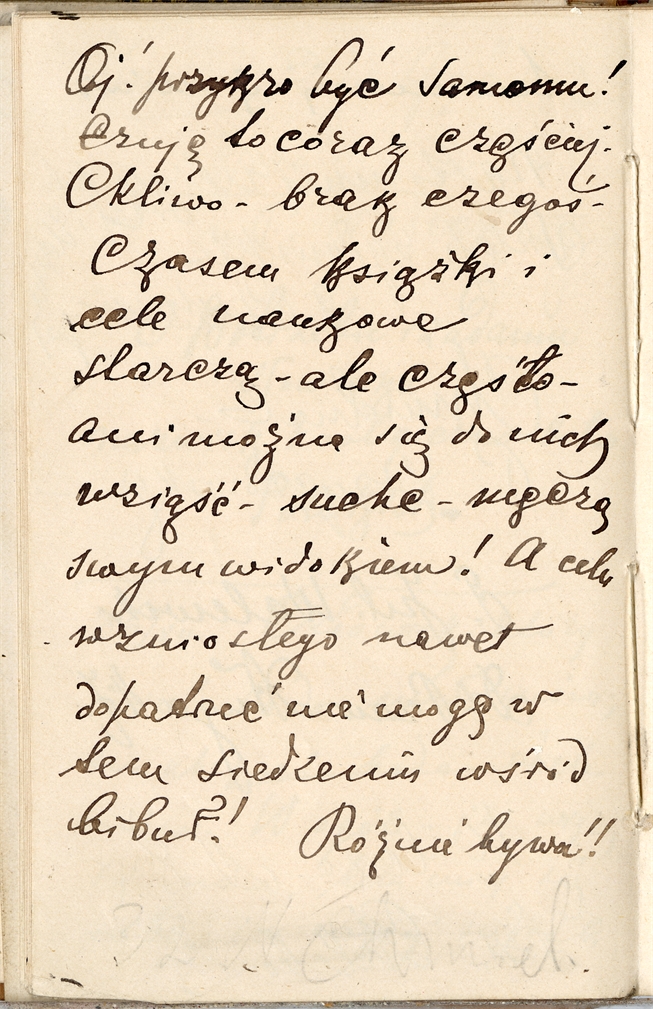 Oj! przykro być samemu!
Czuję to coraz częściej.
Ckliwo - brak czegoś -
Czasem książki i
cele naukowe
starczą - ale często -
ani można się do nich
wziąść - suche - męczą
swym widokiem! A celu
wzniosłego nawet
dopatrzeć nie mogę w
tem siedzeniu wśród
bibuł?! Różnie bywa!!